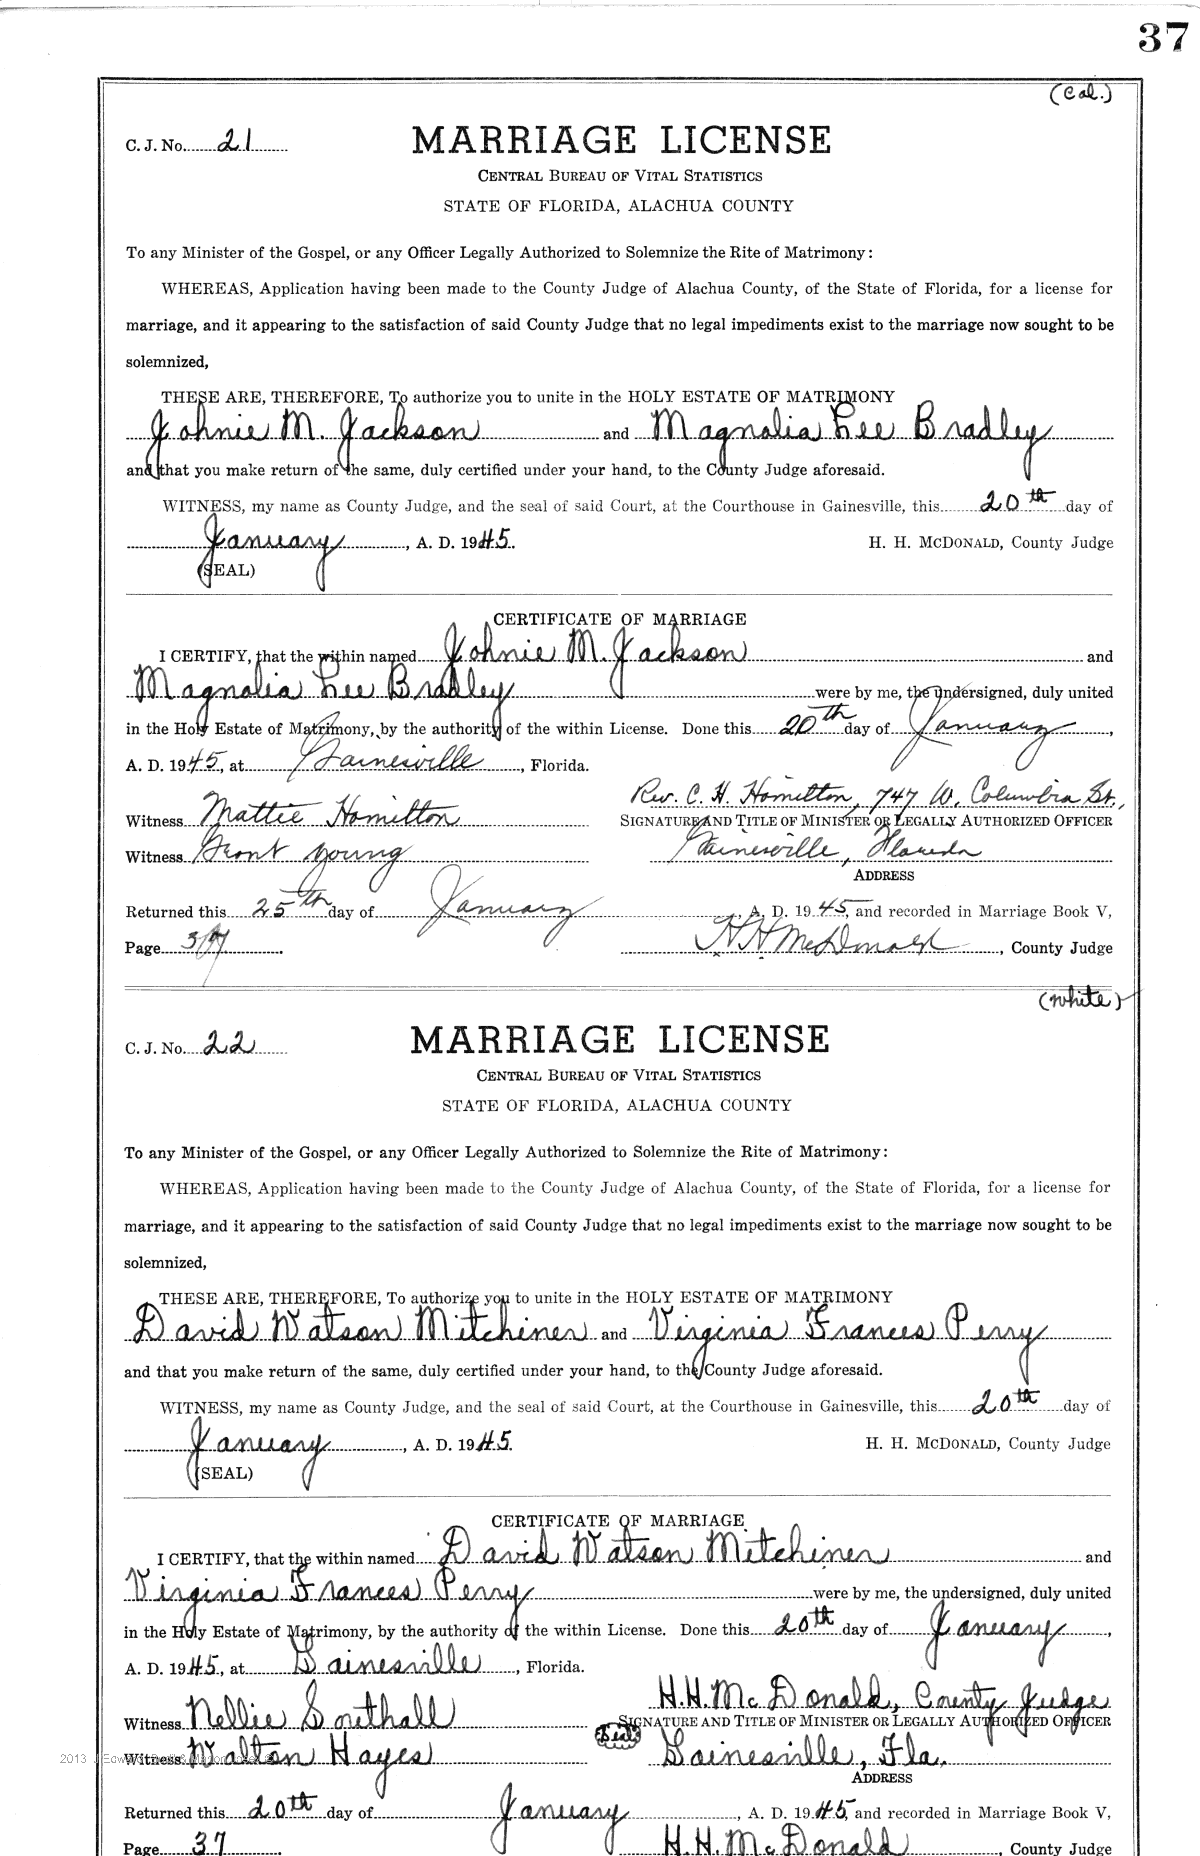 37
(Col.)
C. J. No. 21
MARRIAGE LICENSE
CENTRAL BUREAU OF VITAL STATISTICS
STATE OF FLORIDA, ALACHUA COUNTY
To any Minister of the Gospel, or any Officer Legally Authorized to Solemnize the Rite of Matrimony:
WHEREAS, Application having been made to the County Judge of Alachua County, of the State of Florida, for a license for
marriage, and it appearing to the satisfaction of said County Judge that no legal impediments exist to the marriage now sought to be
solemnized,
THESE ARE, THEREFORE, To authorize you to unite in the HOLY ESTATE OF MATRIMONY
Johnie M. Jackson and Magnolia Lee Bradley
and that you make return of the same, duly certified under your hand, to the County Judge aforesaid.
WITNESS, my name as County Judge, and the seal of said Court, at the Courthouse in Gainesville, this 20th day of
January, A. D. 1945. H. H. MCDONALD, County Judge
(SEAL)
CERTIFICATE OF MARRIAGE
I CERTIFY, that the within named Johnie M. Jackson and
Magnolia Lee Bradley were by me, the undersigned, duly united
in the Holy Estate of Matrimony, by the authority of the within License. Done this 20th day of January,
A. D. 1945, at Gainesville, Florida.
Rev. C. H. Hamilton, 747 W. Columbia St.,
Witness Mattie Hamilton SIGNATURE AND TITLE OF MINISTER OR LEGALLY AUTHORIZED OFFICER
Witness Grant Young Gainesville, Florida
ADDRESS
Returned this 25th day of January, A. D. 1945, and recorded in Marriage Book V,
Page 37. H H McDonald, County Judge
(White)
C. J. No. 22
MARRIAGE LICENSE
CENTRAL BUREAU OF VITAL STATISTICS
STATE OF FLORIDA, ALACHUA COUNTY
To any Minister of the Gospel, or any Officer Legally Authorized to Solemnize the Rite of Matrimony:
WHEREAS, Application having been made to the County Judge of Alachua County, of the State of Florida, for a license for
marriage, and it appearing to the satisfaction of said County Judge that no legal impediments exist to the marriage now sought to be
solemnized,
THESE ARE, THEREFORE, To authorize you to unite in the HOLY ESTATE OF MATRIMONY
David Watson Mitchiner and Virginia Frances Perry
and that you make return of the same, duly certified under your hand, to the County Judge aforesaid.
WITNESS, my name as County Judge, and the seal of said Court, at the Courthouse in Gainesville, this 20th day of
January, A. D. 1945. H. H. MCDONALD, County Judge
(SEAL)
CERTIFICATE OF MARRIAGE
I CERTIFY, that the within named David Watson Mitchiner and
Virginia Frances Perry were by me, the undersigned, duly united
in the Holy Estate of Matrimony, by the authority of the within License. Done this 20th day of January,
A. D. 1945, at Gainesville, Florida.
H. H. McDonald, County Judge
Witness Nellie Southall SIGNATURE AND TITLE OF MINISTER OR LEGALLY AUTHORIZED OFFICER
(Seal)
Witness Walton Hayes Gainesville, Fla.
ADDRESS
Returned this 20th day of January, A. D. 1945, and recorded in Marriage Book V,
Page 37. H. H. McDonald, County Judge
2013 J Edward